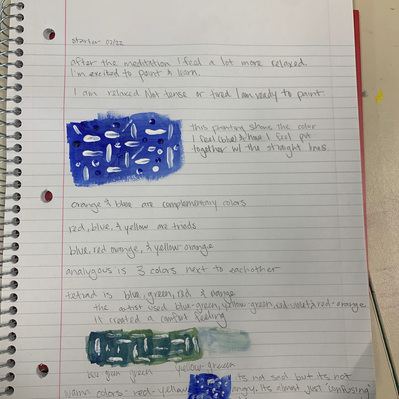 starter 02/22
after the meditation I feel a lot more relaxed.
I'm excited to paint & learn.
I am relaxed Not tense or tired I am ready to paint.
this painting shows the color
I feel (blue) & how I feel put
together w/ the straight lines.
orange & blue are complementary colors
red, blue, & yellow are triads
blue, red orange, & yellow orange
analygous is 3 colors next to eachother
tetrad is blue, green, red & orange
the artist used blue-green, yellow-green, red-violet & red-orange
it created a conflict feeling
blue green green yellow-green
its not sad but its not
warm colors: red-yellow angry, its almost just "confusing"